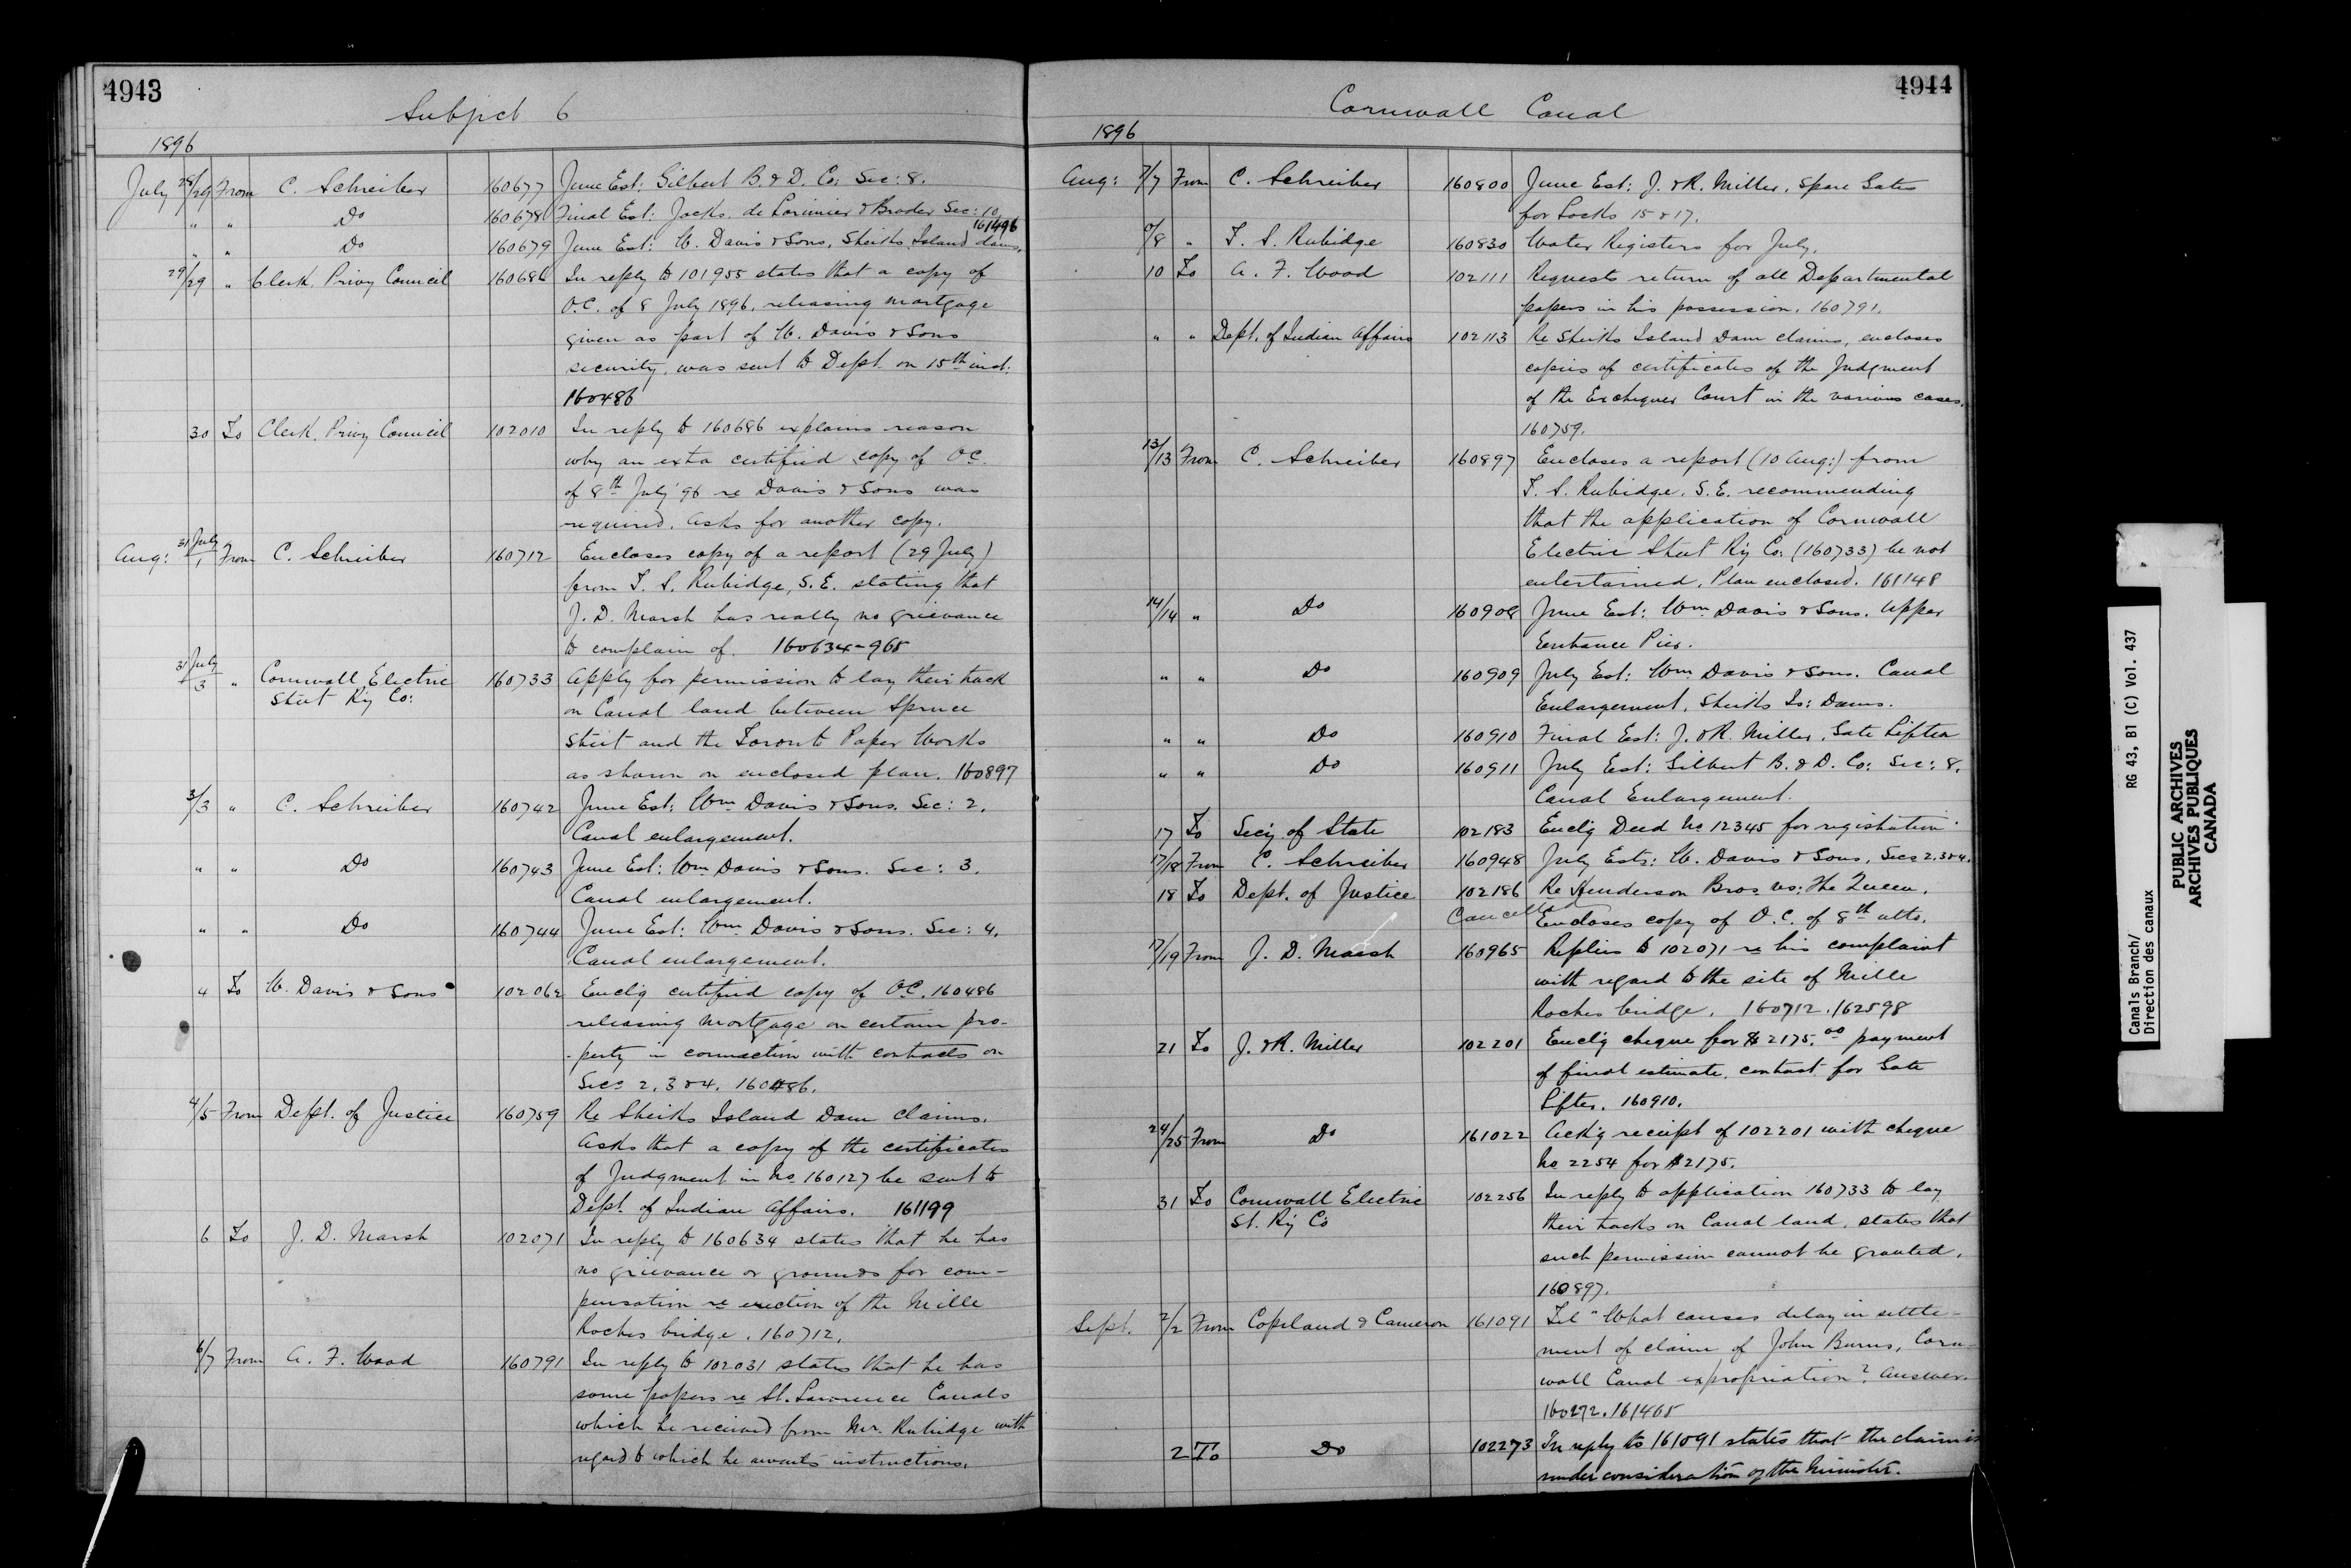 4943
Subject 6
1896
July 28/29 From C. Schreiber 160677 June Est: Gilbert B. & D. Co: Sec: 8.
" " Do 160678 Final Est: Jocks. de Lorimier & Broder Sec: 10.
161496
" " Do 160679 June Est: W. Davis & Sons, Sheiks Island dams.
29/29 " Clerk, Privy Council 160686 In reply to 101955 states that a copy of
O.C. of 8 July 1896, releasing mortgage
given as part of W. Davis & Sons
security, was sent to Dept. on 15th inst.
160486
30 To Clerk, Privy Council 102010 In reply to 160686 explains reason
why an exta certified copy of O.C.
of 8th July '96 re Davis & Sons was
required. Asks for another copy.
Aug: 31 July/1 From C. Schreiber 160712 Encloses copy of a report (29 July)
from T. S. Rubidge, S.E. stating that
J. D. Marsh has really no grievance
to complain of. 160634-965
31 July/3 " Cornwall Electric 160733 Apply for permission to lay their track
Street Ry Co: on Canal land between Spruce
Street and the Toronto Paper Works
as shown on enclosed plan. 160897
3/3 " C. Schreiber 160742 June Est: Wm Davis & Sons. Sec: 2.
Canal enlargement.
" " Do 160743 June Est: Wm Davis & Sons. Sec: 3.
Canal enlargement.
" " Do 160744 June Est: Wm Davis & Sons. Sec: 4.
Canal enlargement.
4 To W. Davis & Sons 102062 Enclg certified copy of O.C. 160486
releasing mortgage on certain pro-
-perty in connection with contracts on
Secs 2, 3 & 4. 160486.
4/5 From Dept. of Justice 160759 Re Sheiks Island Dam claims.
Asks that a copy of the certificates
of Judgment in No 160127 be sent to
Dept. of Indian Affairs. 161199
6 To J. D. Marsh 102071 In reply to 160634 states that he has
no grievance or grounds for com-
pensation re erection of the Mille
Roches bridge. 160712.
6/7 From A. F. Wood 160791 In reply to 102031 states that he has
some papers re St. Lawrence Canals
which he received from Mr. Rubidge with
regard to which he awaits instructions.
4944
Cornwall Canal
1896
Aug: 7/7 From C. Schreiber 160800 June Est: J. & R. Miller, Spare Gates
for Locks 15 & 17.
/8 " T. S. Rubidge 160830 Water Registers for July.
10 To A. F. Wood 102111 Requests return of all Departmental
papers in his possession. 160791.
" " Dept. of Indian Affairs 102113 Re Sheiks Island Dam claims, encloses
copies of certificates of the Judgment
of the Exchequer Court in the various cases.
160759.
13/13 From C. Schreiber 160897 Encloses a report (10 Aug:) from
T. S. Rubidge, S.E. recommending
that the application of Cornwall
Electric Street Ry Co: (160733) be not
entertained. Plan enclosed. 161148
14/14 " Do 160908 June Est: Wm Davis & Sons. Upper
Entrance Pier.
" " Do 160909 July Est: Wm Davis & Sons. Canal
Enlargement, Sheiks Is: Dams.
" " Do 160910 Final Est: J. & R. Miller, Gate Lifter
" " Do 160911 July Est: Gilbert B. & D. Co: Sec: 8.
Canal Enlargement.
17 To Secy of State 102183 Enclg Deed No 12345 for registration
17/18 From C. Schreiber 160948 July Ests: W. Davis & Sons, Secs 2, 3 & 4.
18 To Dept. of Justice 102186 Re Henderson Bros vs: The Queen.
Cancelled Encloses copy of O.C. of 8th ulto.
17/19 From J. D. Marsh 160965 Replies to 102071 re his complaint
with regard to the site of Mille
Roches bridge. 160712. 162598
21 To J. & R. Miller 102201 Enclg cheque for $2175.00 payment
of final estimate, contract for Gate
Lifter. 160910.
24/25 From Do 161022 Ackg receipt of 102201 with cheque
No 2254 for $2175.
31 To Cornwall Electric 102256 In reply to application 160733 to lay
St. Ry Co their tracks on Canal land, states that
such permission cannot be granted.
160897.
Sept. 2/2 From Copeland & Cameron 161091 Tel "What causes delay in settle-
ment of claim of John Burns, Corn-
wall Canal expropriation? Answer.
160272. 161465
2 To Do 102273 In reply to 161091 states that the claim is
under consideration of the Minister.
Canals Branch/ RG 43, B1 (C) Vol. 437
Direction des canaux
PUBLIC ARCHIVES
ARCHIVES PUBLIQUES
CANADA